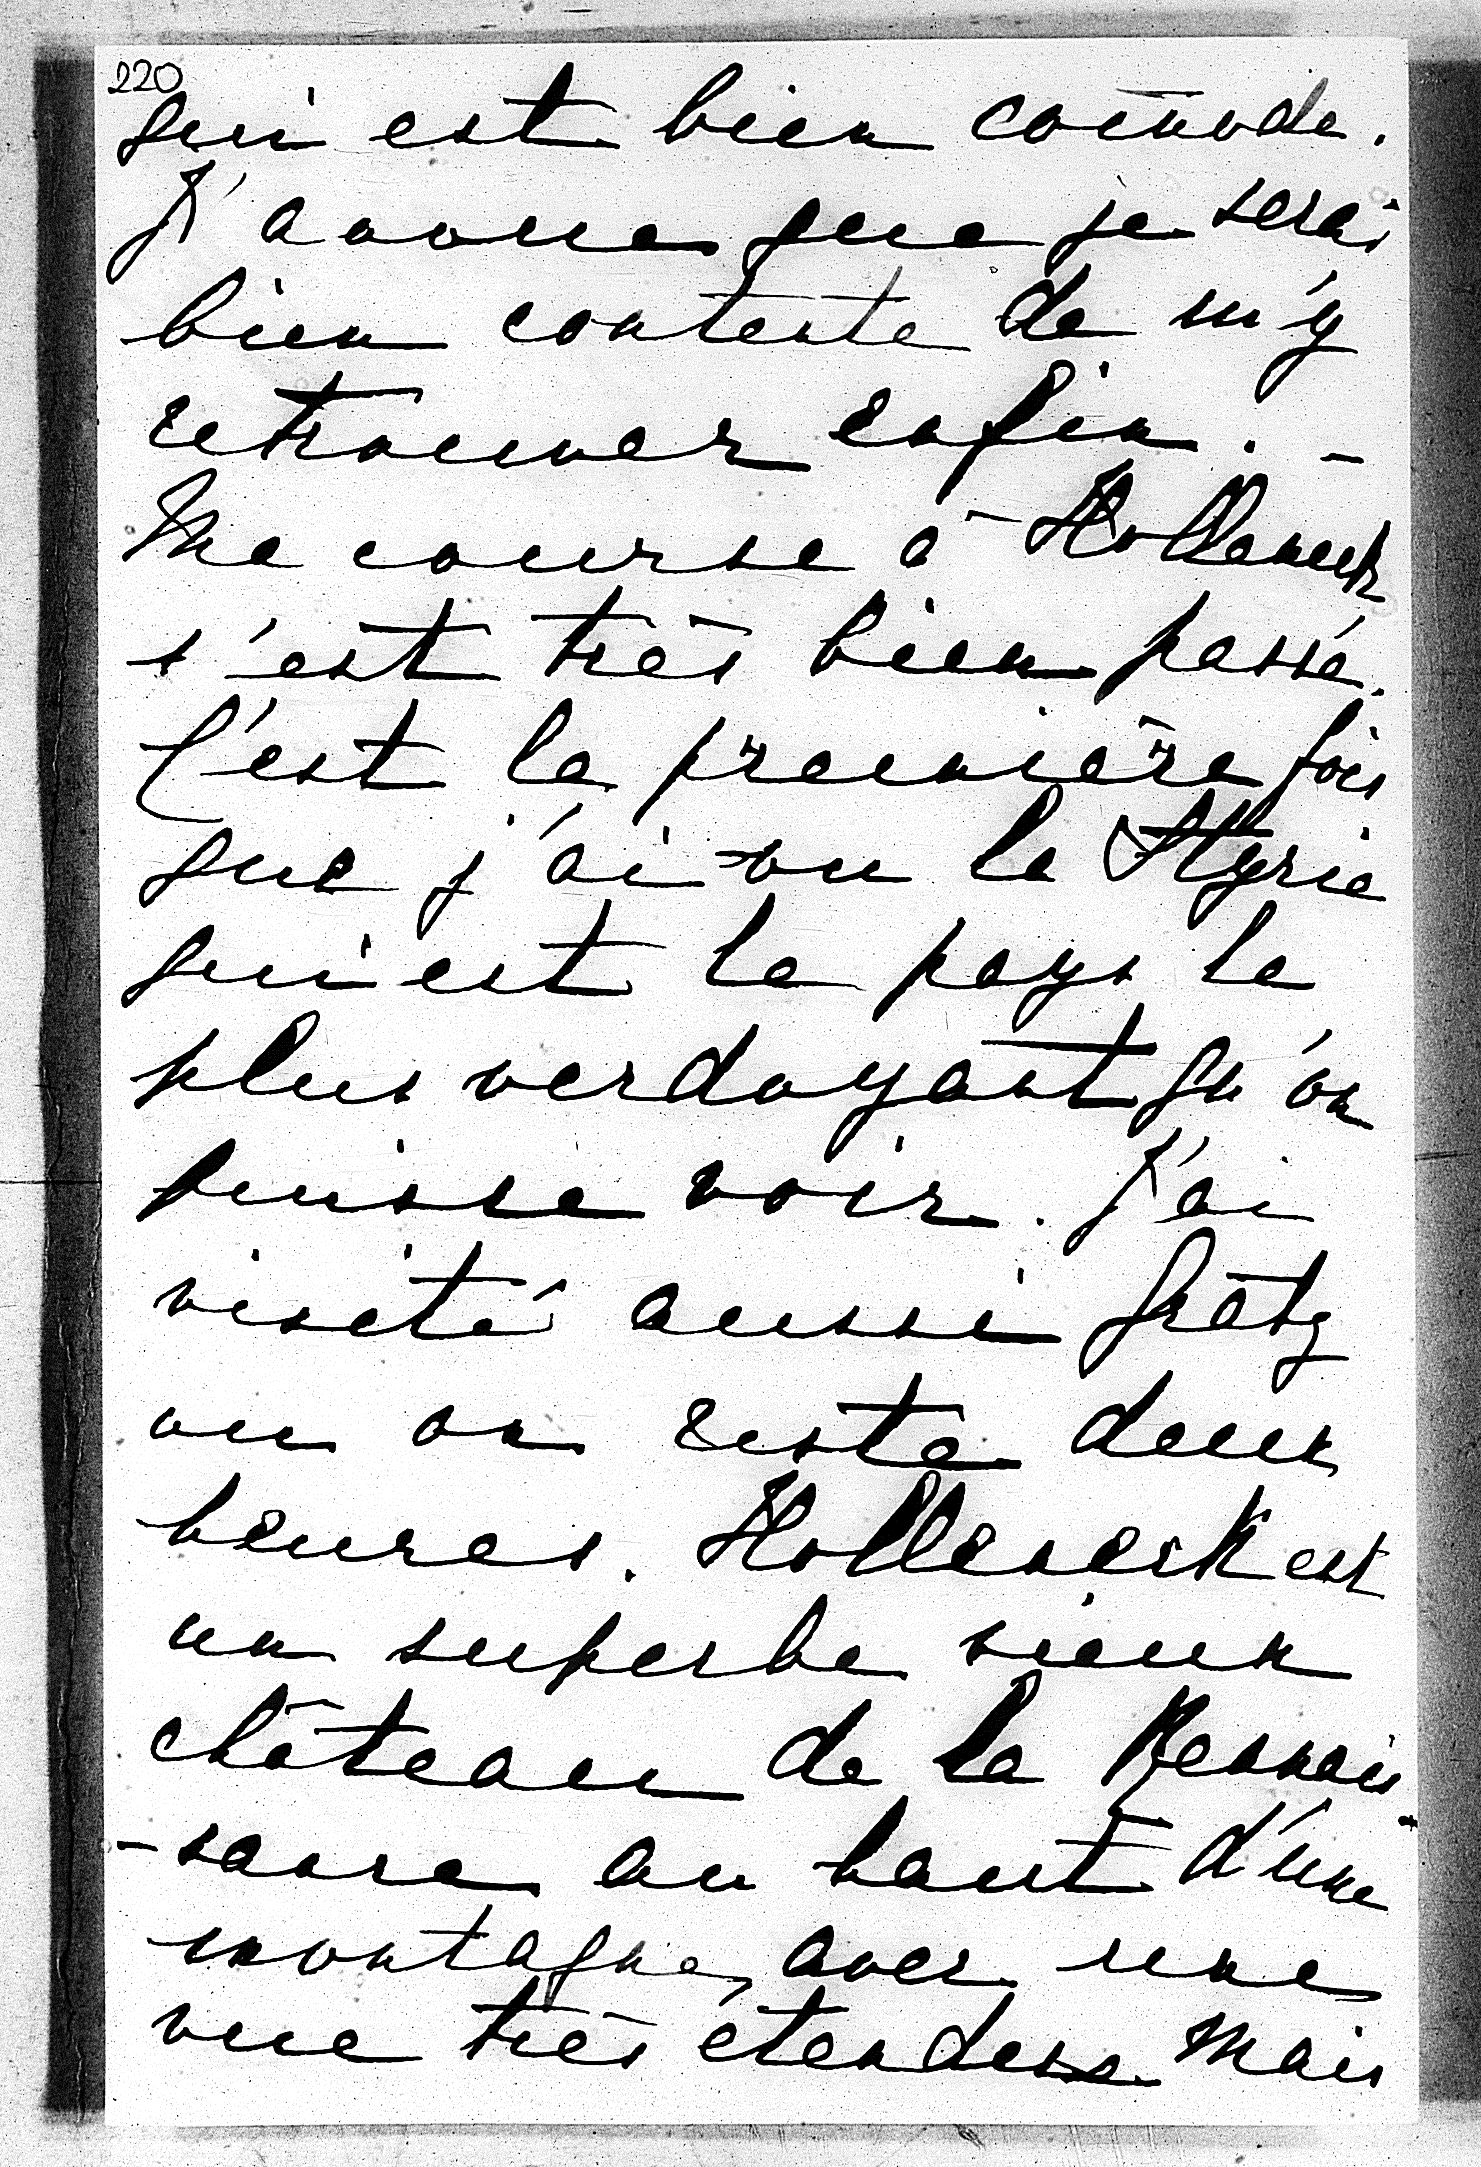 220
qui est bien com̄ode.
J'avoue que je serai
bien contente de m'y
retrouver enfin. -
Ma course à Hollenek
s'est très bien passé.
C'est la première fois
que j'ai vu la Styrie
qui est le pays le
plus verdoyant qu'on
puisse voir. J'ai
visité aussi Gratz
ou on reste deux
heures. Hollenek est
un superbe vieux
château de la Renais
-sance au haut d'une
montagne, avec une
vue très étendue. Mais